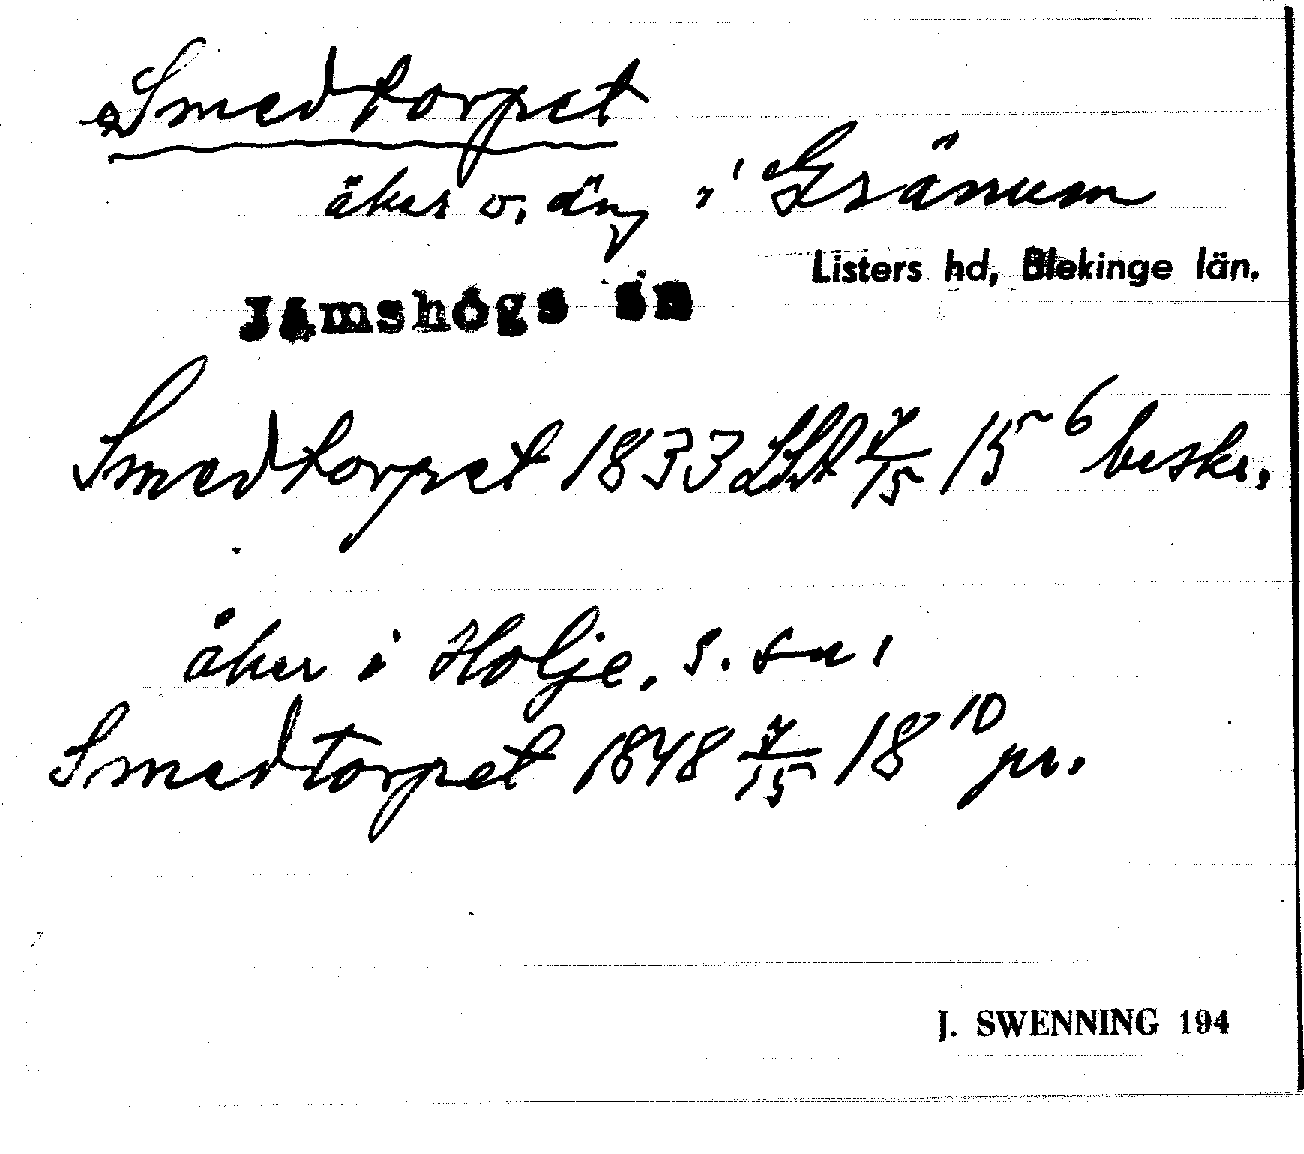 Smedtorpet
åker o. äng i Gränum
Listers hd, Blekinge län.
Jämshögs sn
Smedtorpet 1833 LSA 7/15 15 6 beskr.
åker i Holje, s. sn.
Smedtorpet 1848 7/15 18 10 pr.
J. SWENNING 194